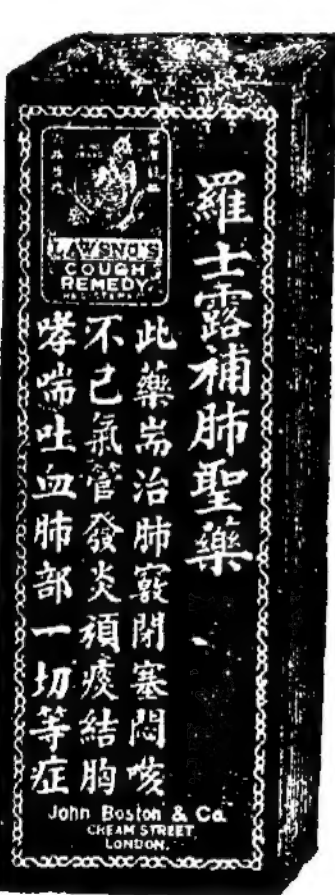 LAWSNO'S
COUGH
REMEDY
羅士露補肺聖藥
此藥耑治肺竅閉塞悶咳
不己氣管發炎頑痰結胸
哮喘吐血肺部一切等症
John Boston & Co.
CREAM STREET
LONDON.